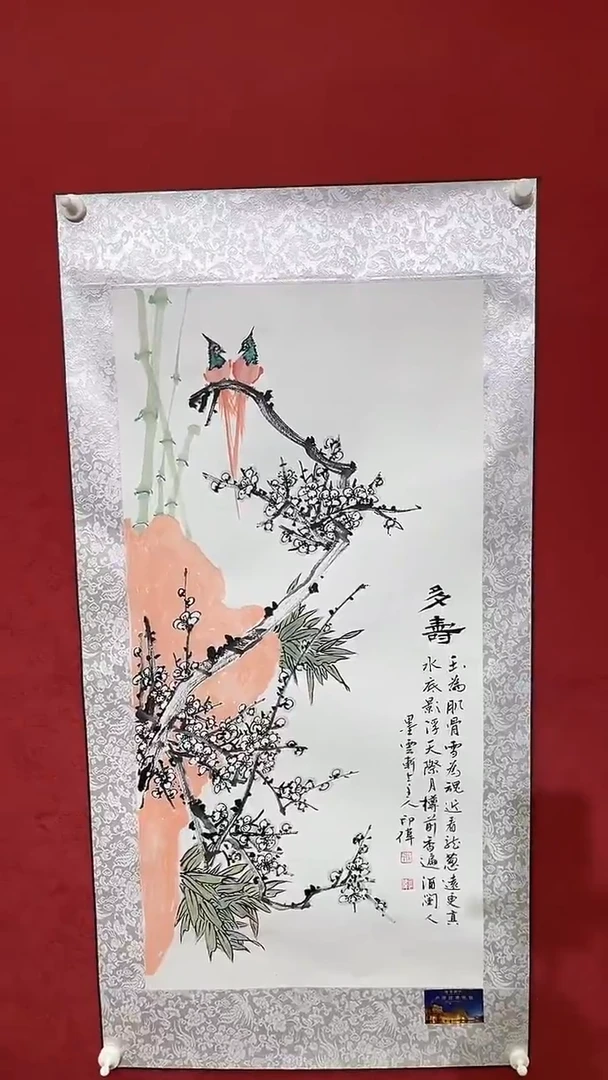 多壽
玉為肌骨雪為魂近看蔥遠更真
水底影浮天際月樽前香逼酒闌人
墨雲軒主人印偉